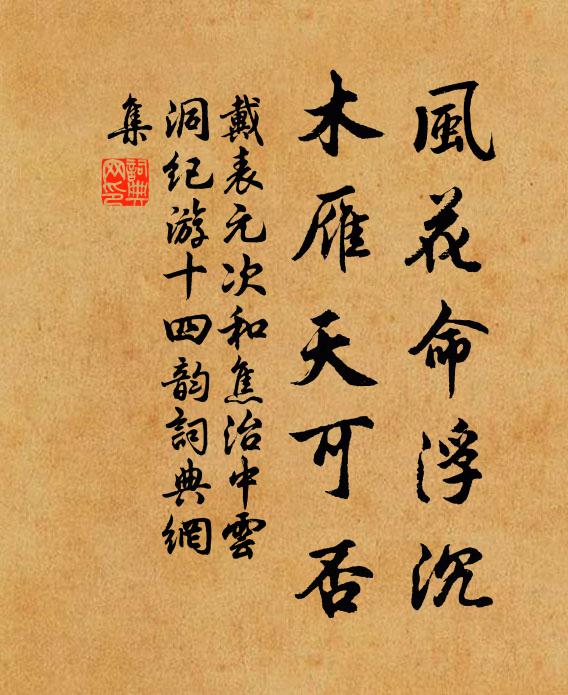 風花命浮沉
木雁天可否
戴表元次和焦治中雲
洞纪游十四韵詞典網
集
詞典
网印